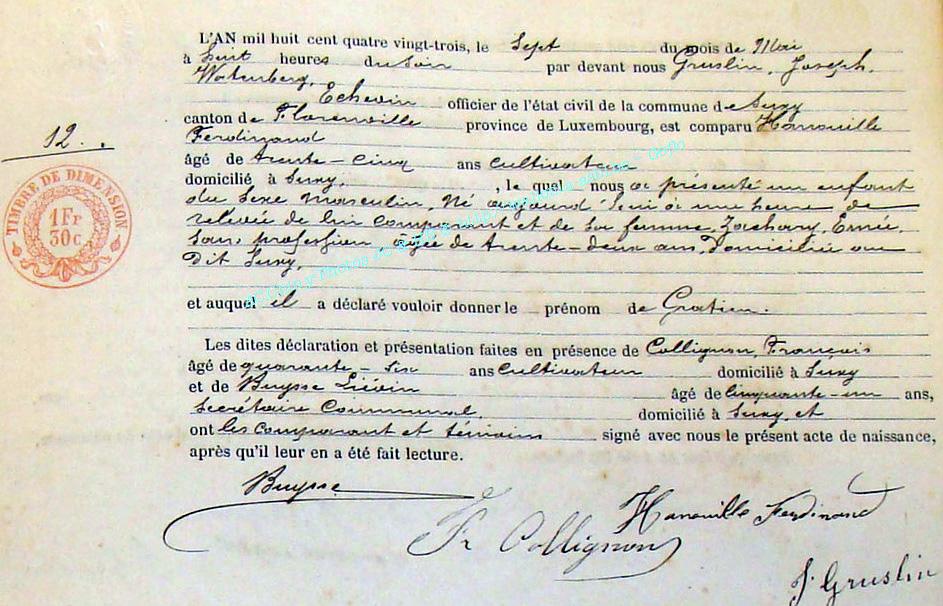 L'AN mil huit cent quatre vingt-trois, le Sept du mois de Mai
à huit heures du Soir par devant nous Gruslin, Joseph.
Watenberg,
Echevin officier de l'état civil de la commune de Suxy
canton de Florenville province de Luxembourg, est comparu Hanouille
Ferdinand
12.
âgé de trente-cinq ans Cultivateur
domicilié à Suxy, , le quel nous a présenté un enfant
du sexe masculin, Né aujourd'hui à une heure de
relevée de lui comparant et de sa femme Zachary,
Sans profession agée de trente-deux ans Domiciliée au
dit Suxy.
TIMBRE DE DIMENSION
1 Fr
30 c
et auquel il a déclaré vouloir donner le prénom de Gratien.
Les dites déclaration et présentation faites en présence de Collignon, François
âgé de quarante-six ans Cultivateur domicilié à Suxy
et de Buysse Liévin âgé de Cinquante-un ans,
Secrétaire Communal, domicilié à Suxy et
ont les comparant et témoins signé avec nous le présent acte de naissance,
après qu'il leur en a été fait lecture.
Buysse
Hanouille Ferdinand
Fr Collignon
J. Gruslin